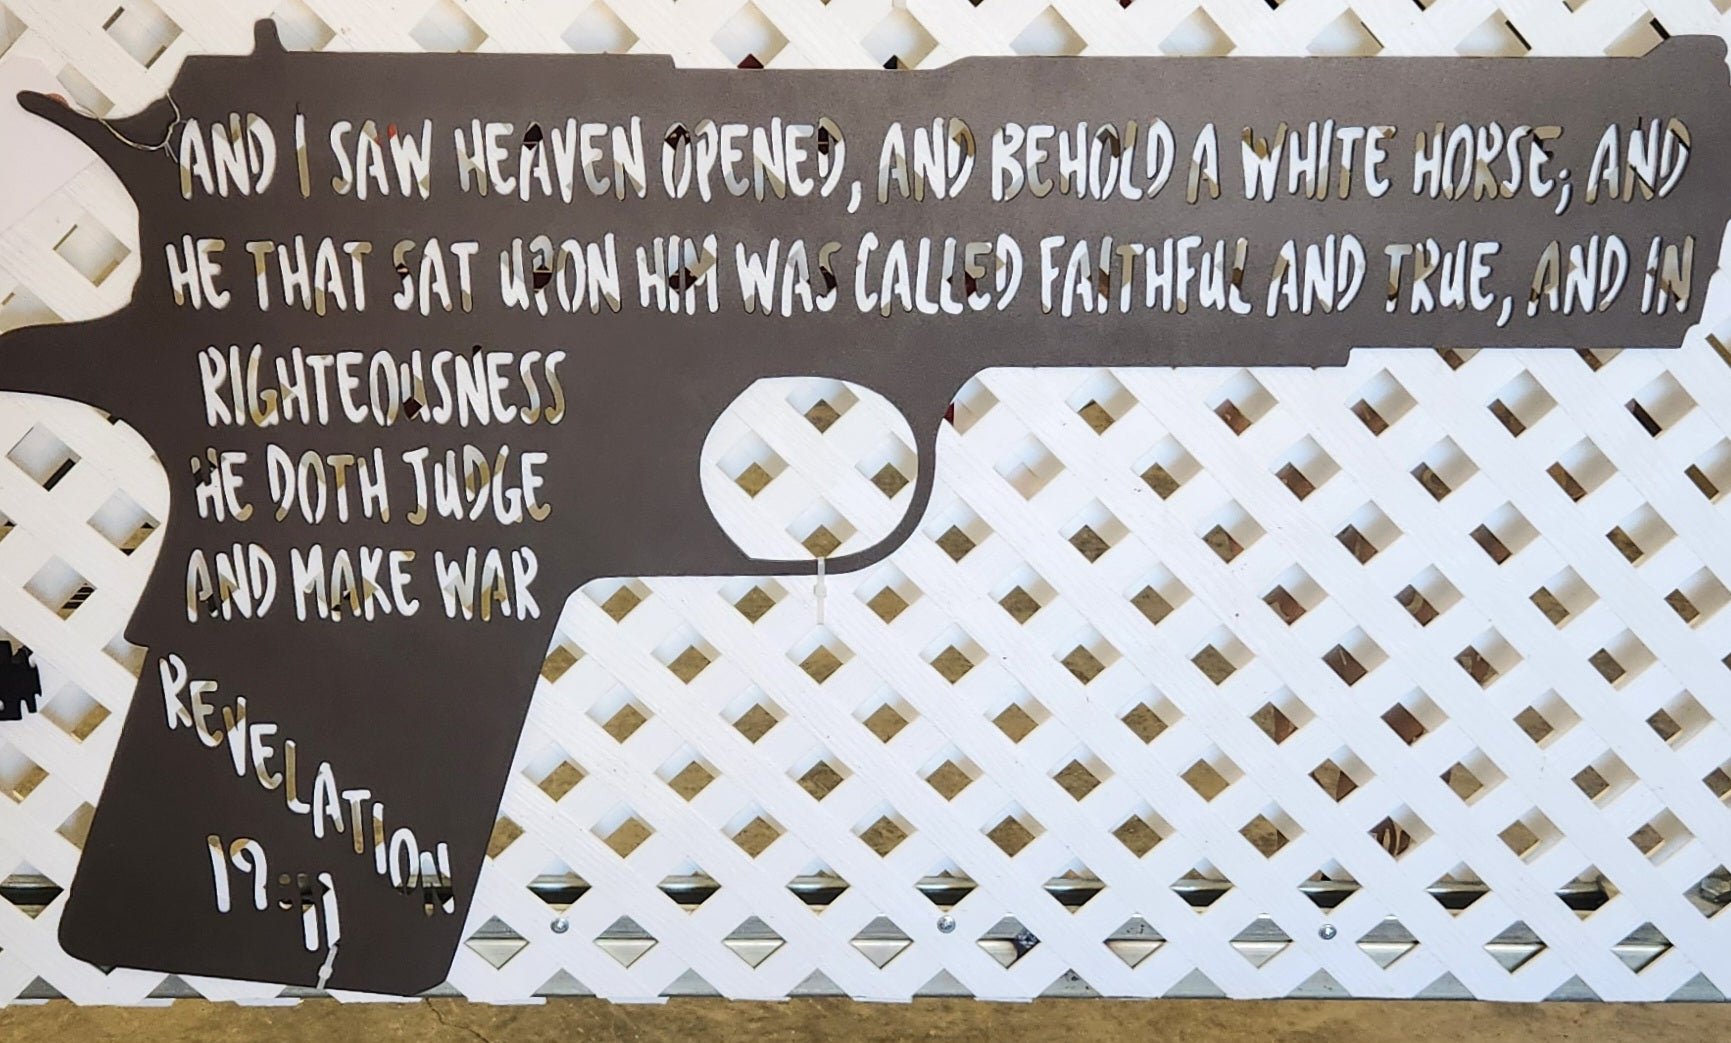 AND I SAW HEAVEN OPENED, AND BEHOLD A WHITE HORSE; AND
HE THAT SAT UPON HIM WAS CALLED FAITHFUL AND TRUE, AND IN
RIGHTEOUSNESS
HE DOTH JUDGE
AND MAKE WAR
REVELATION
19:11